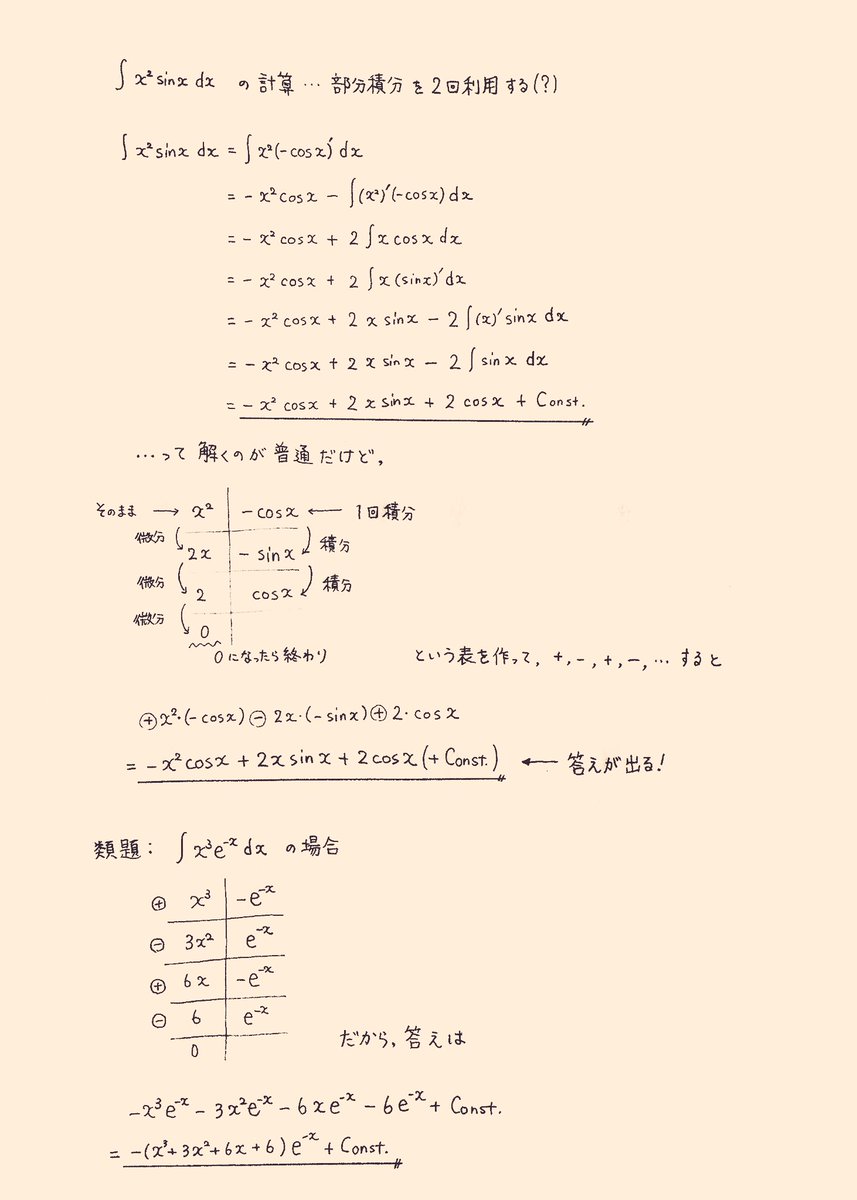 ∫x²sinx dx の計算… 部分積分を2回利用する(?)
∫x²sinx dx = ∫x²(-cosx)′dx
= -x²cosx - ∫(x²)′(-cosx)dx
= -x²cosx + 2∫x cosx dx
= -x²cosx + 2∫x(sinx)′dx
= -x²cosx + 2x sinx - 2∫(x)′sinx dx
= -x²cosx + 2x sinx - 2∫sinx dx
= -x²cosx + 2x sinx + 2cosx + Const.
…って解くのが普通だけど,
そのまま → x² | -cosx ← 1回積分
微分 2x | -sinx 積分
微分 2 | cosx 積分
微分 0
0になったら終わり という表を作って, +,-,+,-,… すると
⊕x²·(-cosx)⊖2x·(-sinx)⊕2·cosx
= -x²cosx + 2x sinx + 2cosx (+ Const.) ← 答えが出る!
類題: ∫x³e⁻ˣdx の場合
⊕ x³ | -e⁻ˣ
⊖ 3x² | e⁻ˣ
⊕ 6x | -e⁻ˣ
⊖ 6 | e⁻ˣ
0
だから, 答えは
-x³e⁻ˣ - 3x²e⁻ˣ - 6xe⁻ˣ - 6e⁻ˣ + Const.
= -(x³+3x²+6x+6)e⁻ˣ + Const.